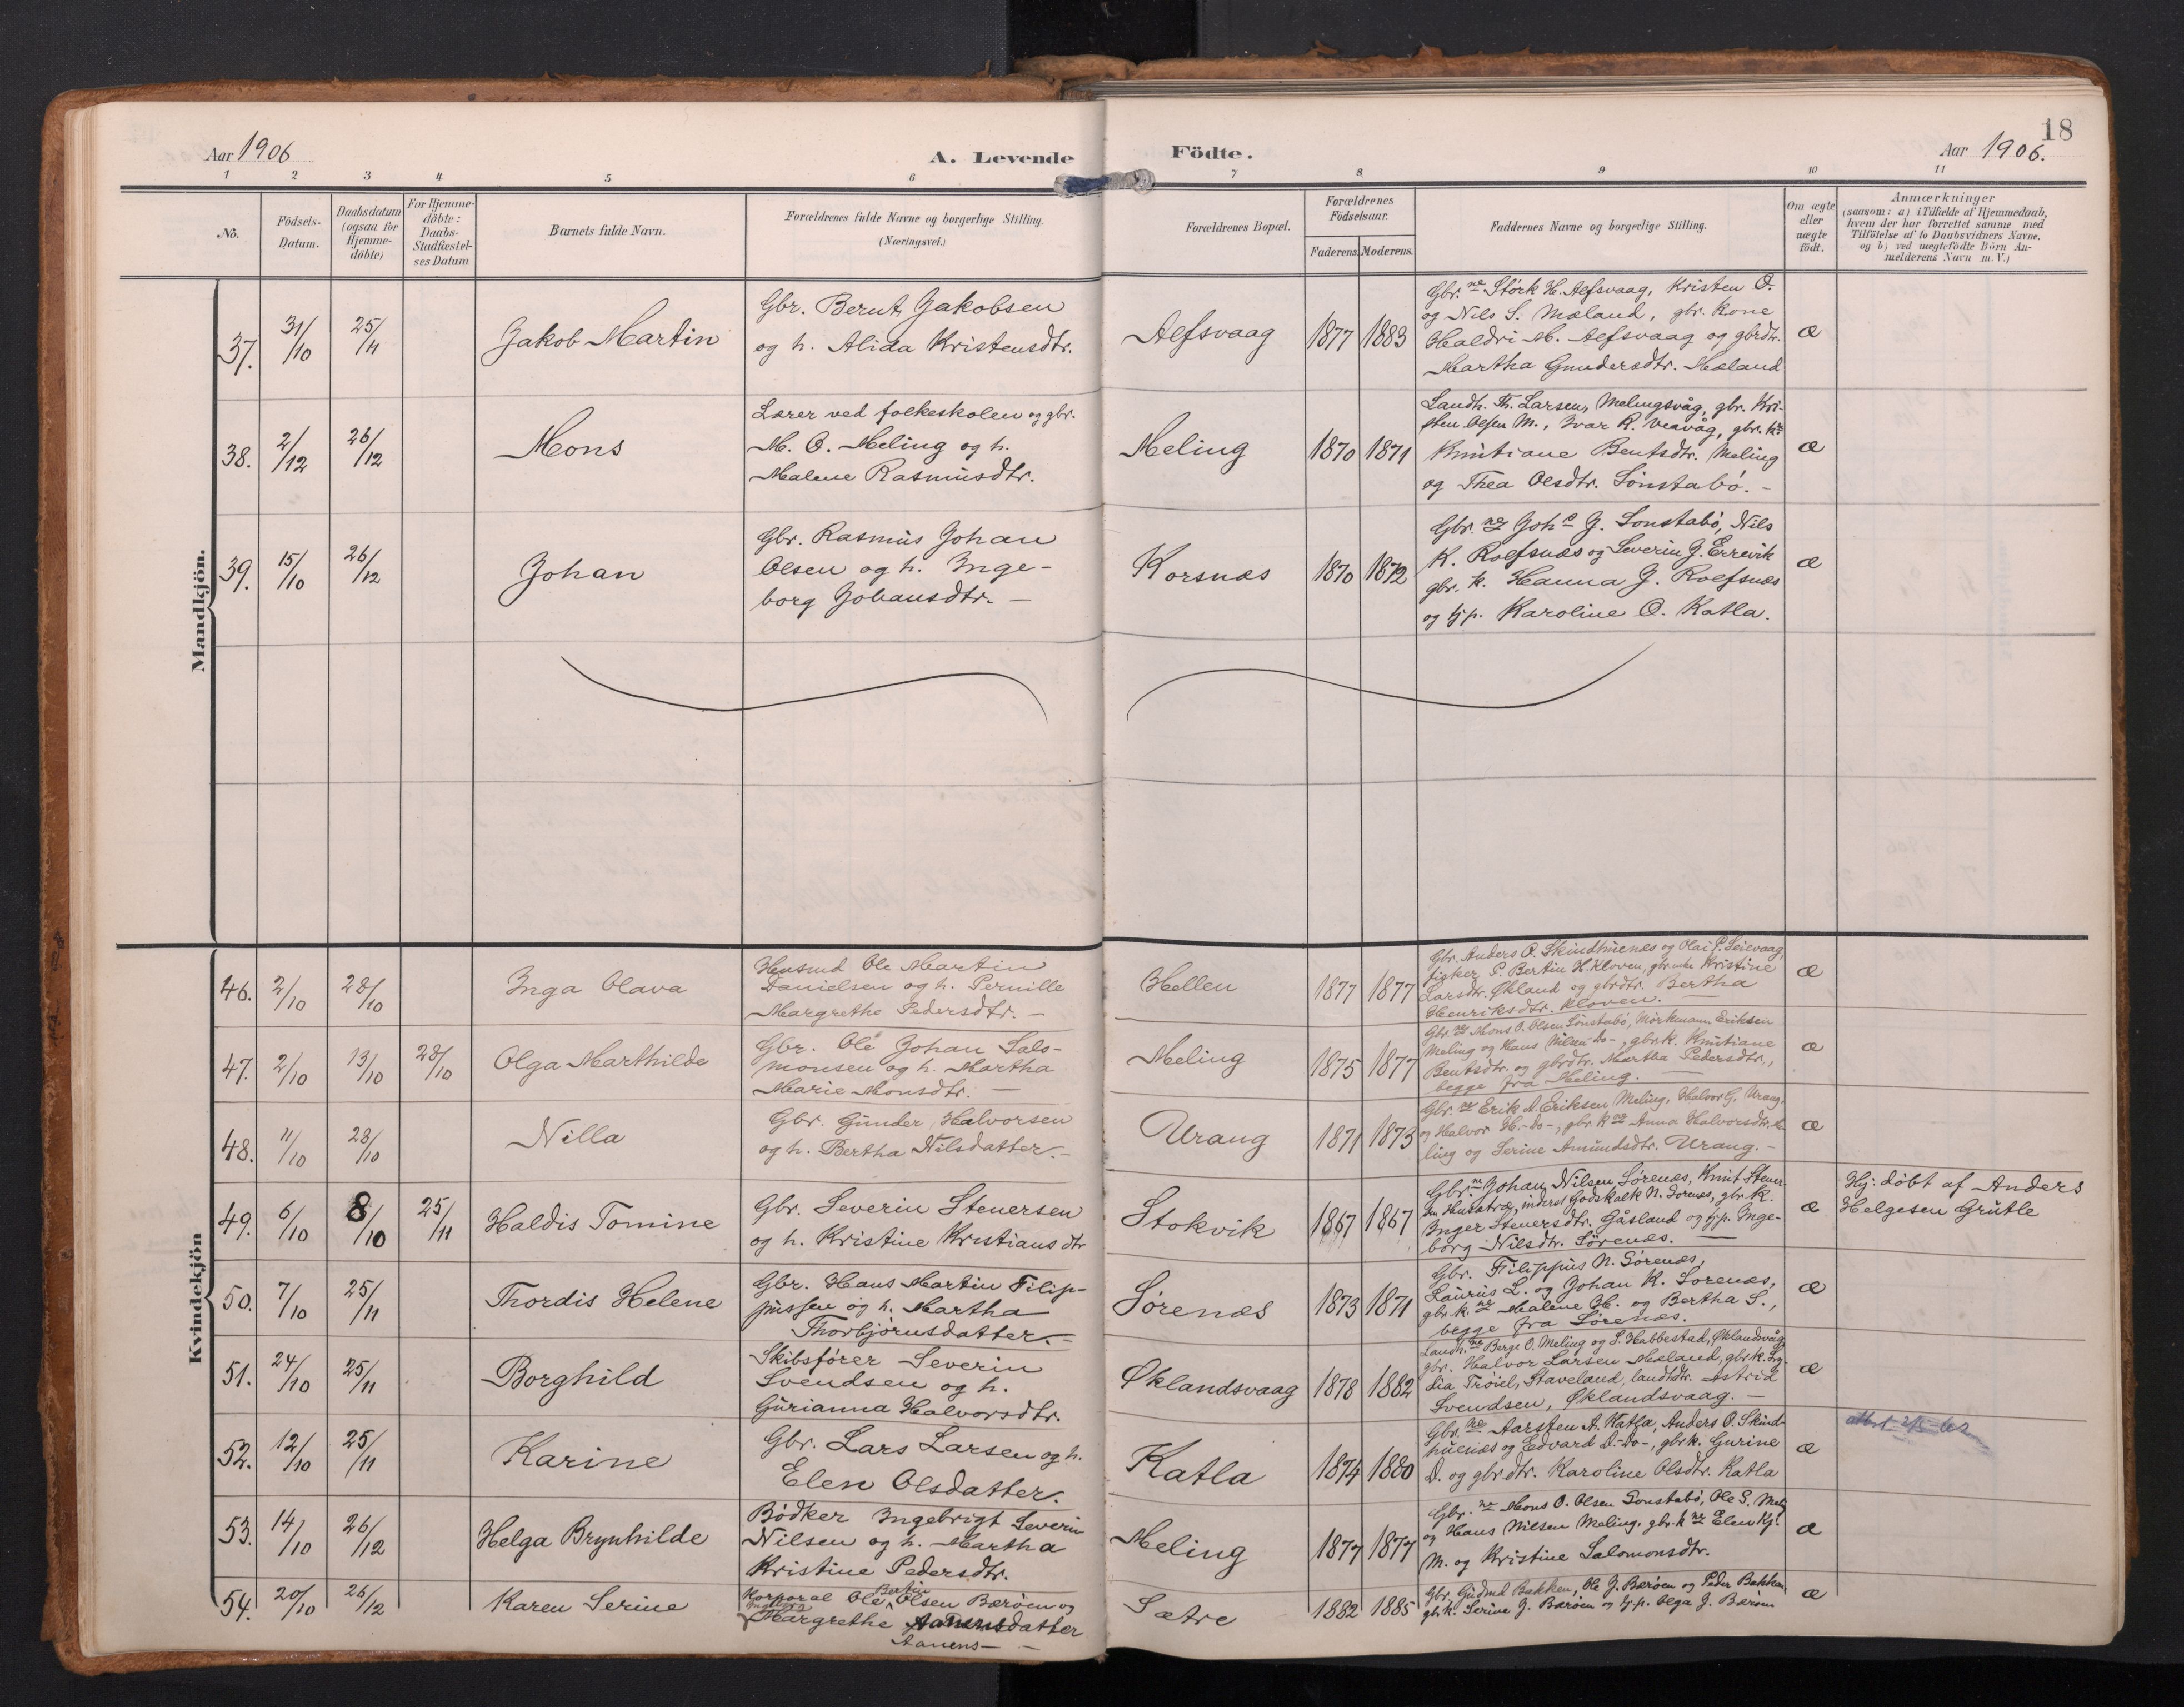 18
Aar 1906
A. Levende Födte.
Aar 1906.
1 2 3 4 5 6 7 8 9 10 11
No.
Födsels-Datum.
Daabsdatum (ogsaa för Hjemme-döbte)
For Hjemme-döbte: Daabs-Stadfæstel-ses Datum
Barnets fulde Navn.
Forældrenes fulde Navne og borgerlige Stilling.
(Næringsvei.)
Forældrenes Bopæl.
Forældrenes Födselsaar.
Faderens. Moderens.
Faddernes Navne og borgerlige Stilling.
Om ægte eller uægte födt.
Anmærkninger
(saasom: a) i Tilfælde af Hjemmedaab,
hvem der har forrettet samme med
Tilföielse af to Daabsvidners Navne,
og b) ved uægtefödte Börn An-
melderens Navn m. V.)
Mandkjön.
37. 31/10 25/11 Jakob Martin
Gbr. Bernt Jakobsen
og h. Alida Kristensdtr.
Alfsvaag 1877 1883
Gbr. ne Störk H. Alfsvaag, Kristen O.
og Nils S. Mæland, gbr. kone
Haldri M. Alfsvaag og gbrdtr.
Martha Gundersdtr. Mæland
æ
38. 2/12 26/12 Mons
Lærer ved folkeskolen og gbr.
M. O. Meling og h.
Malene Rasmusdtr.
Meling 1870 1871
Landh. Th. Larsen, Melingsvåg, gbr. Kri-
sten Olsen M., Ivar R. Veavåg, gbr. k.
Knutiane Bentsdtr. Meling
og Thea Olsdtr. Sönstabö. -
æ
39. 15/10 26/12 Johan
Gbr. Rasmus Johan
Olsen og h. Inge-
borg Johansdtr. -
Korsnæs 1870 1872
Gbr. ne Joh. G. Sonstabö, Nils
K. Rolfsnæs og Severin G. Errevik
gbr. k. Hanna J. Rolfsnæs
og tj.p. Karoline O. Katla.
æ
Kvindekjön
46. 2/10 28/10 Inga Olava
Husmd Ole Martin
Danielsen og h. Pernille
Margrethe Pedersdtr. -
Hellen 1877 1877
Gbr. Anders O. Skindhuenæs og Olai P. Leirvaag,
fisker P. Bertin H. Kloven, Kristine
Larsdtr. Økland og gbrdtr. Bertha
Henriksdtr. Kloven.
æ
47. 2/10 13/10 28/10 Olga Marthilde
Gbr. Ole Johan Salo-
monsen og h. Martha
Marie Monsdtr. -
Meling 1875 1877
Gbr. ne Mons O. Olsen Sönstabö, Mörkmann Eriksen
Meling og Hans Nilsen -do-, gbr. k. Knutiane
Bentsdtr. og gbrdtr. Martha Pedersdtr.,
begge fra Meling.
æ
48. 11/10 28/10 Nilla
Gbr. Gunder Halvorsen
og h. Bertha Nilsdatter. -
Urang 1871 1873
Gbr. ne Erik A. Eriksen Meling, Halvor G. Urang,
og Halvor H. -do-, gbr. k. ne Anna Halvorsdtr. Me
ling og Serine Amundsdtr. Urang. -
æ
49. 6/10 8/10 25/11 Haldis Tomine
Gbr. Severin Stenersen
og h. Kristine Kristiansdtr
Stokvik 1867 1867
Gbr. ne Johan Nilsen Sörenæs, Knut Stener-
sen inderst Godskalk N. Sorenæs, gbr. k.
Inger Stenersdtr. Gåsland og tj.p. Inge-
borg Nilsdtr. Sörenæs.
æ
Hj: döbt af Anders
Helgesen Grutle
50. 7/10 25/11 Thordis Helene
Gbr. Hans Martin Filip-
pussen og h. Martha
Thorbjörnsdatter. -
Sørenæs 1873 1871
Gbr. Filippus N. Sörenæs,
Laurus L. og Johan K. Sorenæs,
gbr. k. ne Malene H. og Bertha S.,
begge fra Sörenæs.
æ
51. 24/10 25/11 Borghild
Skibsfører Severin
Svendsen og h.
Gurianna Halvorsdtr.
Øklandsvaag 1878 1882
Landh. ne Berge O. Meling og S. Habbestad, Øklandsvåg
gbr. Halvor Larsen Mæland, gbr. k. Ly-
dia Trøiel, Staveland, landhdtr. Astrid
Svendsen, Øklandsvaag. -
æ
52. 12/10 25/11 Karine
Gbr. Lars Larsen og h.
Elen Olsdatter.
Katla 1874 1880
Gbr. ne Aarsten A. Katla, Anders O. Skind-
huenæs og Edvard D. -do-, gbr. k. Gurine
D. og gbr. dtr. Karoline Olsdtr. Katla
æ
53. 14/10 26/12 Helga Brynhilde
Bödker Ingebrigt Severin
Nilsen og h. Martha
Kristine Pedersdtr.
Meling 1877 1877
Gbr. ne Mons O. Olsen Sonstabö, Ole S. Meling
og Hans Nilsen Meling, gbr. k. ne Elen Kj.
M. og Kristine Salomonsdtr.
æ
54. 20/10 26/12 Karen Serine
Bertin
Korporal Ole Olsen Bærøen og
Ingeborg
Margrethe datter
Aanens- -
Sætre 1882 1885
Gbr. Gudmd Bakken, Ole J. Bærøen og Peder Bakken
gbr. k. Serine J. Bærøen og tj.p. Olga J. Bærøen
æ